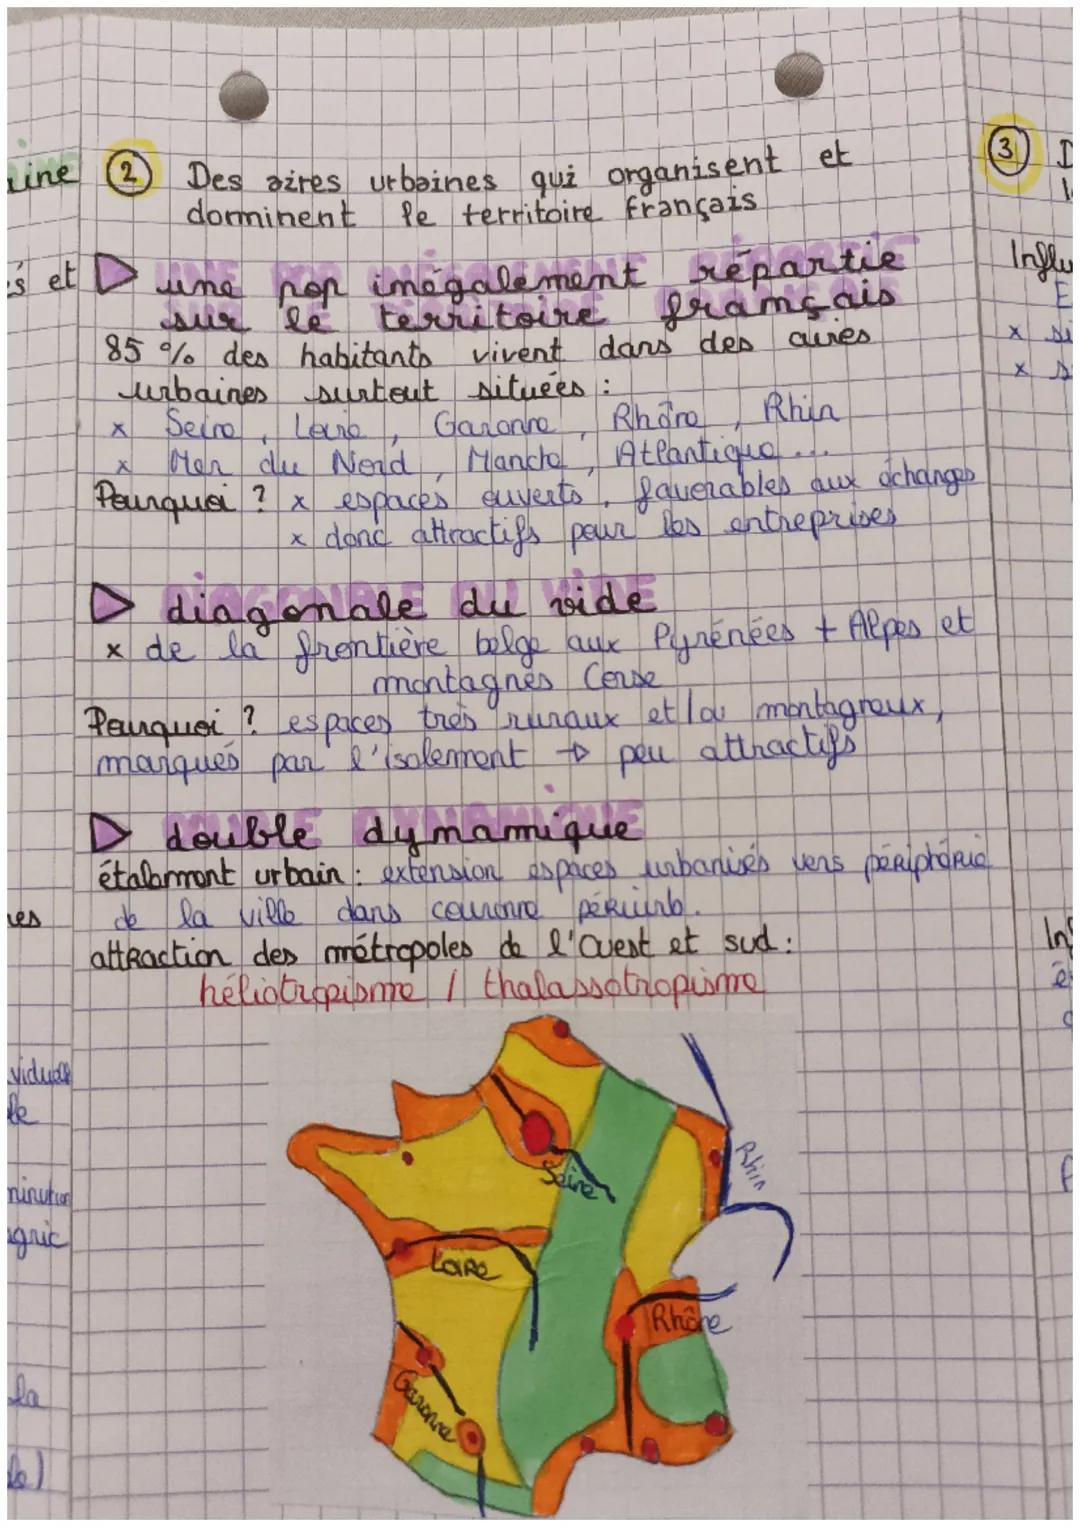 2 Des aires urbaines qui organisent et
dominent le territoire français
une pop inégalement répartie
sur le territoire français
85 % des habitants vivent dans des aires
urbaines surtout situées :
x Seine, Loire, Garonne, Rhône, Rhin
x Mer du Nord, Manche, Atlantique...
Pourquoi ? x espaces ouverts, favorables aux échanges
x donc attractifs pour les entreprises
diagonale du vide
x de la frontière belge aux Pyrénées + Alpes et
montagnes Corse
Pourquoi ? espaces très ruraux et/ou montagneux,
marqués par l'isolement → peu attractifs
double dynamique
étalement urbain : extension espaces urbanisés vers périphérie
de la ville dans couronne périurb.
attraction des métropoles de l'Ouest et sud :
héliotropisme / thalassotropisme
Seine
Rhin
Loire
Rhône
Garonne
3
Influ
et
la